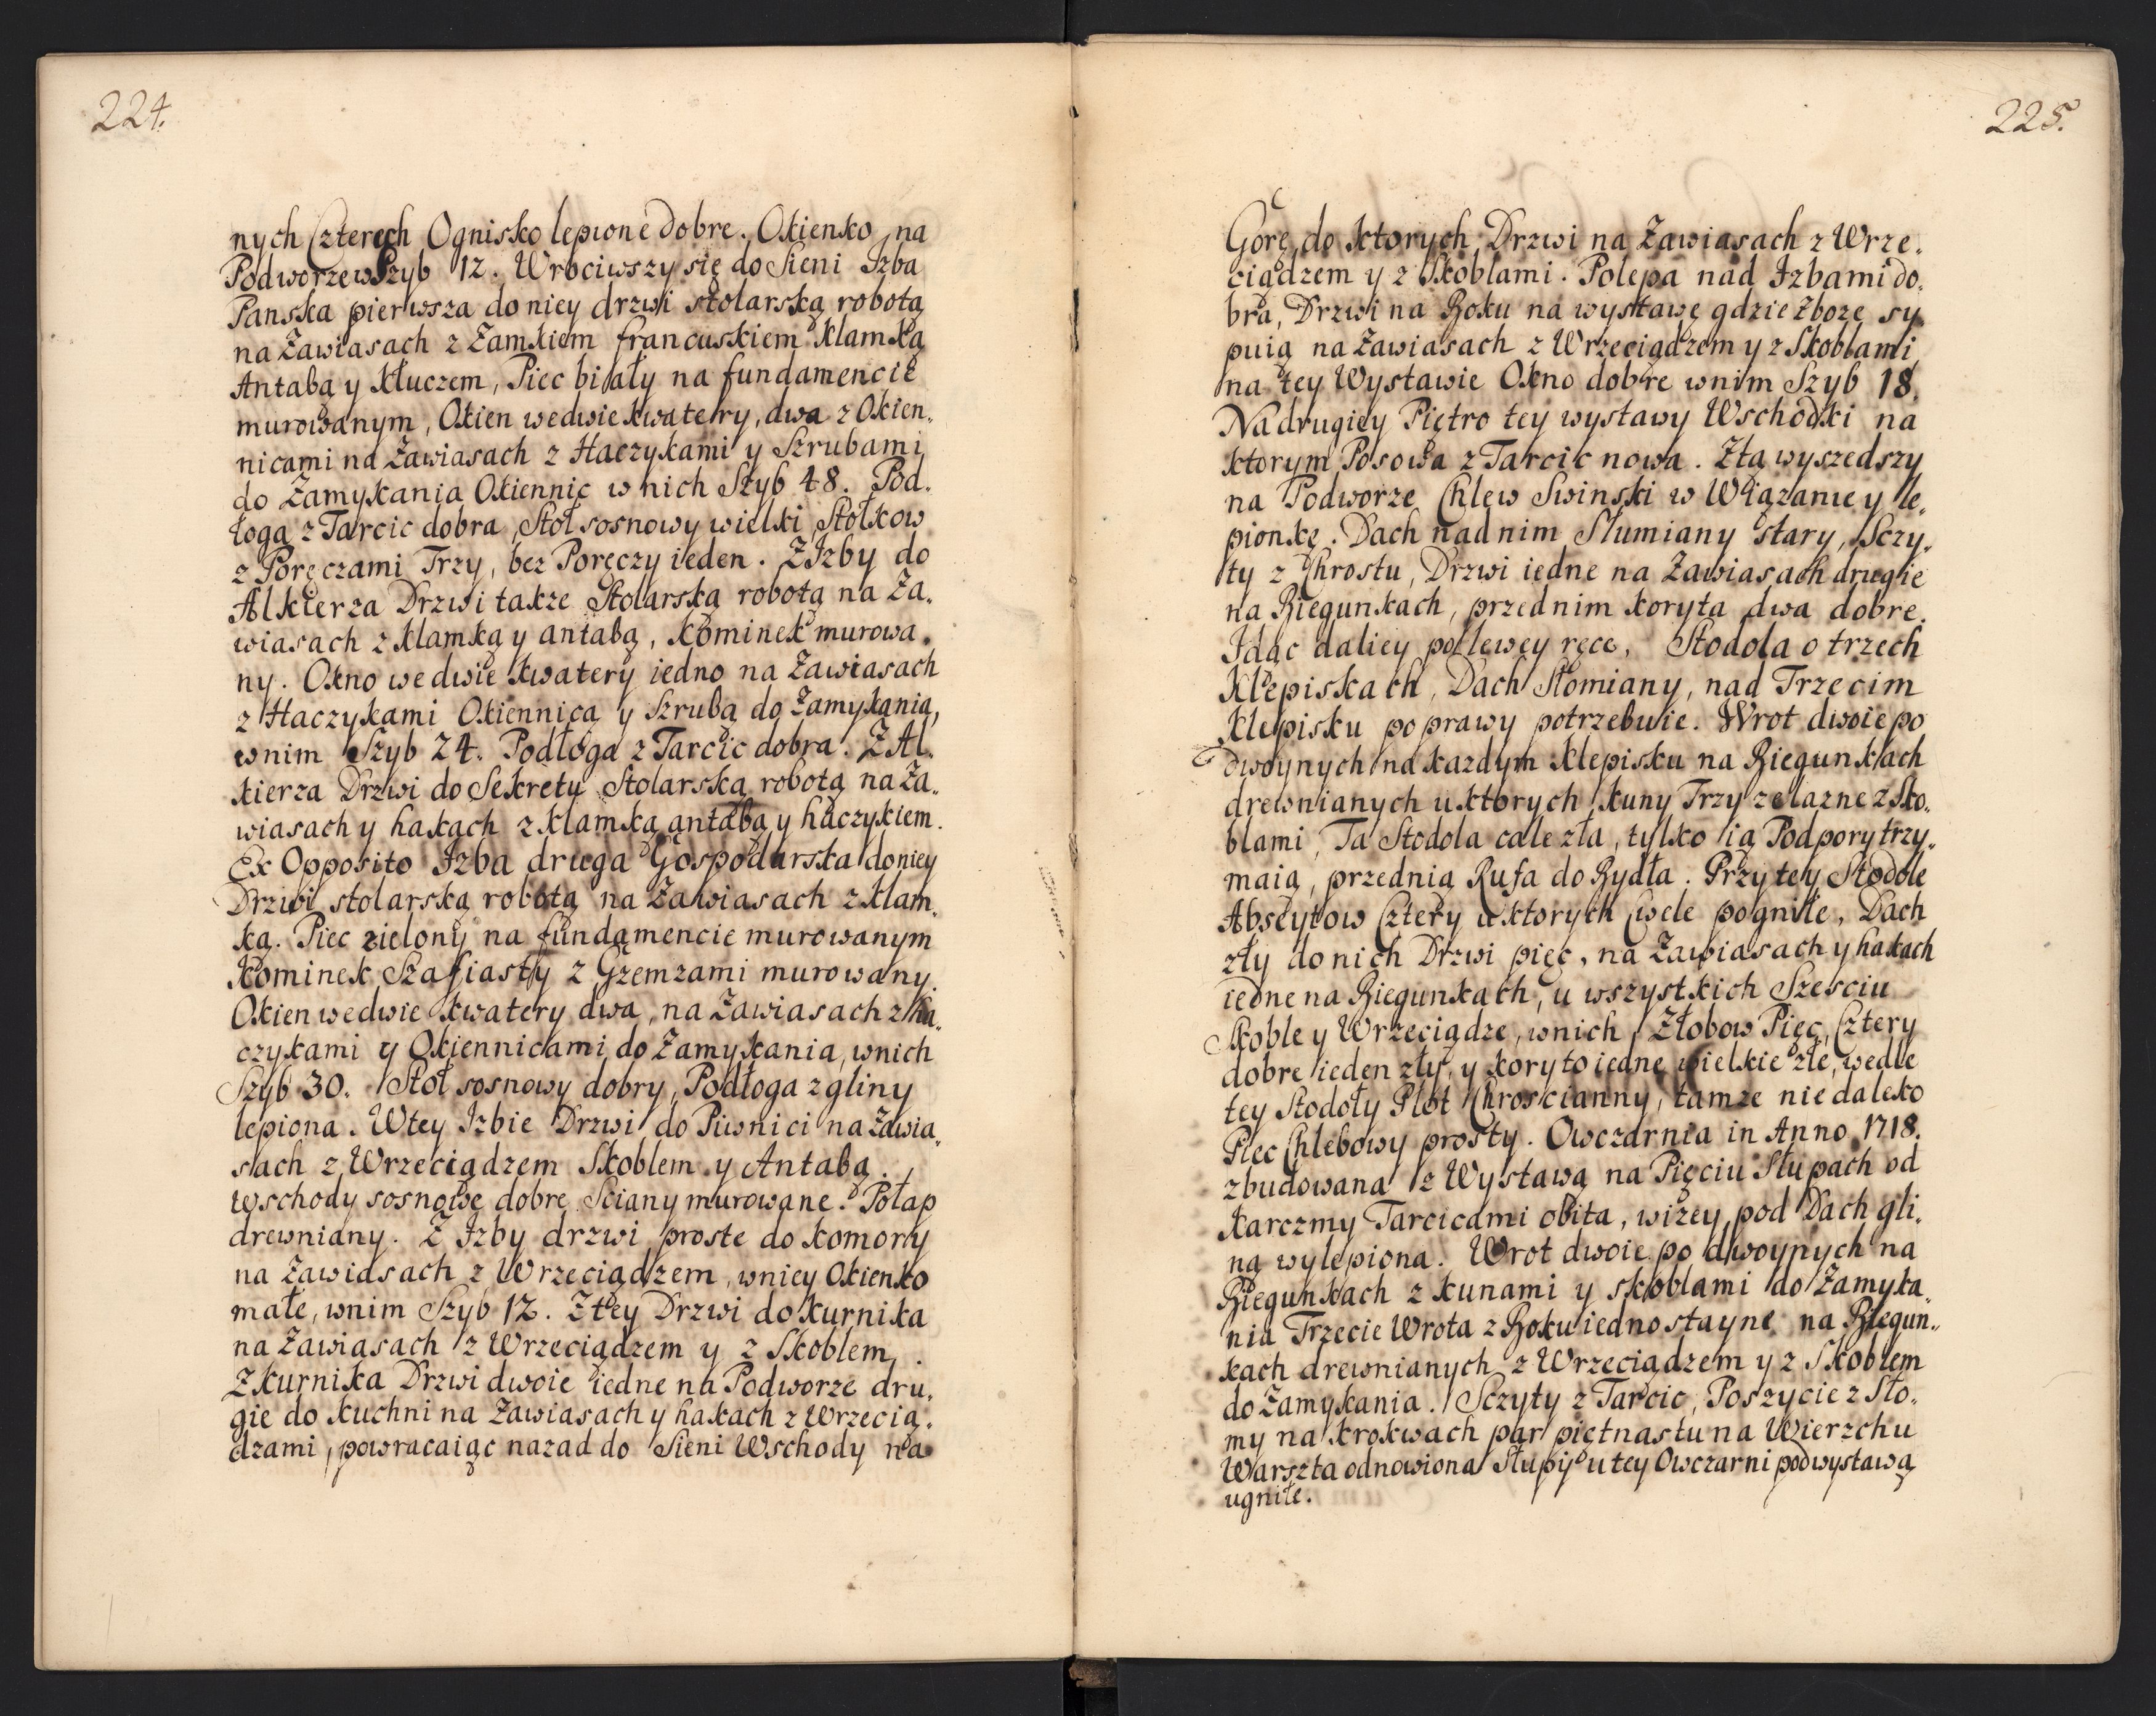 224.
nych Czterech Ognisko lepione dobre. Okienko na
Podworzew Szyb 12. Wrociwszy się do Sieni Izba
Panska pierwsza do niey drzwi stolarską robotą
na Zawiasach z Zamkiem francuskiem Klamką
Antabą y Kluczem, Piec biały na fundamencie
murowanym, Okien we dwie kwatery, dwa z Okien,
nicami na Zawiasach z Haczykami y Szrubami
do Zamykania Okiennic w nich Szyb 48. Pod,
łoga z Tarcic dobra, Stoł sosnowy wielki, Stołkow
z Poręczami Trzy, bez Poręczy ieden. Z Izby do
Alkierza Drzwi takze Stolarską robotą na Za,
wiasach z klamką y antabą, kominek murowa,
ny. Okno we dwie kwatery iedno na Zawiasach
z Haczykami Okiennicą y Szrubą do Zamykania,
w nim Szyb 24. Podłoga z Tarcic dobra. Z Al,
kierza Drzwi do Sekretu Stolarską robotą na Za,
wiasach y hakach z klamką antabą y haczykiem.
Ex Opposito Izba druga Gospodarska do niey
Drzwi stolarską robotą na Zawiasach z klam,
ką. Piec zielony na fundamencie murowanym
Kominek Szafiasty z Gzemzami murowany.
Okien we dwie kwatery dwa, na Zawiasach z ha,
czykami y Okiennicami do Zamykania, w nich
Szyb 30. Stoł sosnowy dobry, Podłoga z gliny
lepiona. W tey Izbie Drzwi do Piwnici na Zawia,
sach z Wrzeciądzem Skoblem y Antabą.
Wschody sosnowe dobre Sciany murowane. Połap
drewniany. Z Izby drzwi proste do komory
na Zawiasach z Wrzeciądzem, w niey Okienko
małe, w nim Szyb 12. Z tey Drzwi do kurnika
na Zawiasach z Wrzeciądzem y z Skoblem.
Z kurnika Drzwi dwoie iedne na Podworze dru,
gie do kuchni na Zawiasach y hakach z Wrzecią,
dzami, powracaiąc nazad do Sieni Wschody na
225.
Gorę, do ktorych Drzwi na Zawiasach z Wrze,
ciądzem y z Skoblami. Polepa nad Izbami do,
bra, Drzwi na Boku na wystawę gdzie zboze sy,
puią na Zawiasach z Wrzeciądzem y z Skoblami
na tey Wystawie Okno dobre w nim Szyb 18.
Na drugiey Piętro tey wystawy Wschodki na
ktorym Posowa z Tarcic nowa. Ztą wyszedszy
na Podworze Chlew Swinski w Wiązanie y le,
pionkę. Dach nad nim Słumiany stary, Sczy,
ty z Chrostu, Drzwi iedne na Zawiasach drugie
na Biegunkach, przed nim koryta dwa dobre.
Idąc daliey po lewey ręce, Stodola o trzech
Klepiskach, Dach Słomiany, nad Trzecim
Klepisku poprawy potrzebuie. Wrot dwoie po
dwoynych na kazdym Klepisku na Biegunkach
drewnianych u ktorych kuny Trzy zelazne z Sko,
blami, Ta Stodola cale zła, tylko ią Podpory trzy,
maią, przed nią Rufa do Bydła. Przy tey Stodole
Abscytow Cztery u ktorych Cwele pogniłe, Dach
zły do nich Drzwi pięc, na Zawiasach y hakach
iedne na Biegunkach, u wszystkich Szesciu
Skoble y Wrzeciądze, w nich Złobow Pięc, Cztery
dobre ieden zły, y koryto iedne wielkie złe, wedle
tey Stodoły Płot Chroscianny, tamze nie daleko
Piec Chlebowy prosty. Owczarnia in Anno 1718.
zbudowana z Wystawą na Pięciu Słupach od
Karczmy Tarcicami obita, wizey pod Dach gli,
ną wylepiona. Wrot dwoie po dwoynych na
Biegunkach z kunami y skoblami do Zamyka,
nia Trzecie Wrota z Boku iednostayne na Biegun,
kach drewnianych z Wrzeciądzem y z Skoblem
do Zamykania. Sczyty z Tarcic, Poszycie z Sło,
my na krokwach par piętnastu na Wierzchu
Warszta odnowiona Słupy u tey Owczarni pod wystawą
ugniłe.